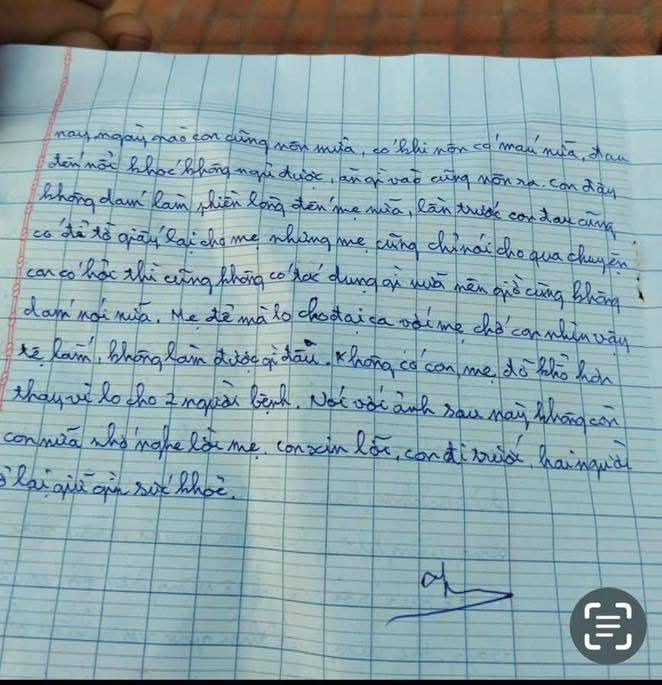 nay ngày nào con cũng nôn mửa, có khi nôn cả máu nữa, đau
đến nỗi khóc không ngủ được, ăn gì vào cũng nôn ra. con đây
không dám làm phiền lòng đến mẹ nữa, lần trước con đau cũng
có để tờ giấy lại cho mẹ nhưng mẹ cũng chỉ nói cho qua chuyện
con có học thì cũng không có tác dụng gì nữa nên giờ cũng không
dám nói nữa. Mẹ để mà lo cho đại ca với mẹ chớ con nhìn vậy
tệ lắm, không làm được gì đâu. Không có con, mẹ đỡ khổ hơn
thay vì lo cho 2 người bệnh. Nói với ảnh sau này không còn
con nữa nhớ nghe lời mẹ. con xin lỗi, con đi trước, hai người
ở lại giữ gìn sức khoẻ.